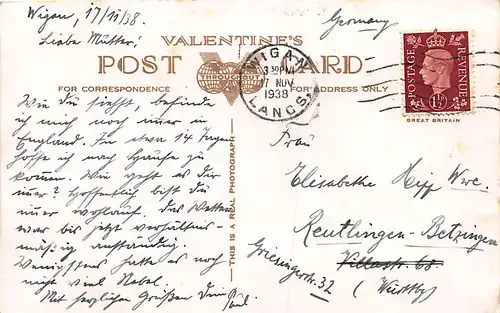 Wigan, 17/11/38.
Germany
Liebe Mutter!
VALENTINE'S
POST CARD
FOR CORRESPONDENCE
FOR ADDRESS ONLY
THROUGHOUT
WIGAN
3 30 PM
17 NOV
1938
LANCS
POSTAGE
REVENUE
1½D
GREAT BRITAIN
THIS IS A REAL PHOTOGRAPH
Wie du siehst, befinde
ich mich noch immer in
England. In etwa 14 Tagen
hoffe ich nach Hause zu
kommen. Wie geht es dir
immer? Hoffentlich bist du
immer wohlauf. Das Wetter
war bis jetzt verhältnis-
mäßig anständig.
Wenigstens hatte es noch
nicht viel Nebel.
Mit herzlichen Grüßen Dein
Paul.
Frau
Elisabethe Wwe.
Reutlingen-Betzingen
Villastr. 68.
Griesingerstr. 32
(Württbg)